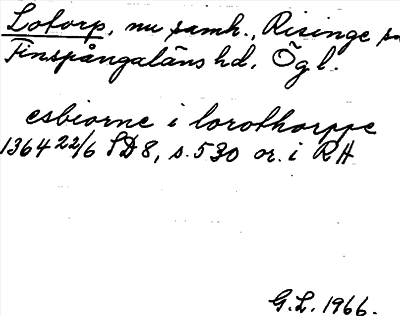 Lotorp, nu samh., Risinge sn
Finspångaläns hd. Ögl.
esbiorne i lorothorppe
1364 22/6 SD 8, s. 530 or. i RA
G.L. 1966.